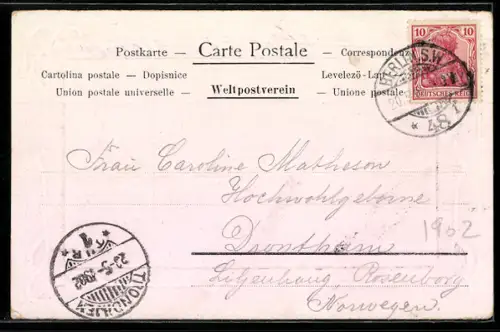 Postkarte — Carte Postale — Correspondenz
Cartolina postale — Dopisnice Levelező-Lap
Union postale universelle — Weltpostverein — Unione postale
10 10
DEUTSCHES REICH
BERLIN S.W.
* 48 1
Frau Caroline Matheson
Hochwohlgeborne
Drontheim
1902
Rosenborg
Norwegen.
TRONDHJEM
23-5-1902
1